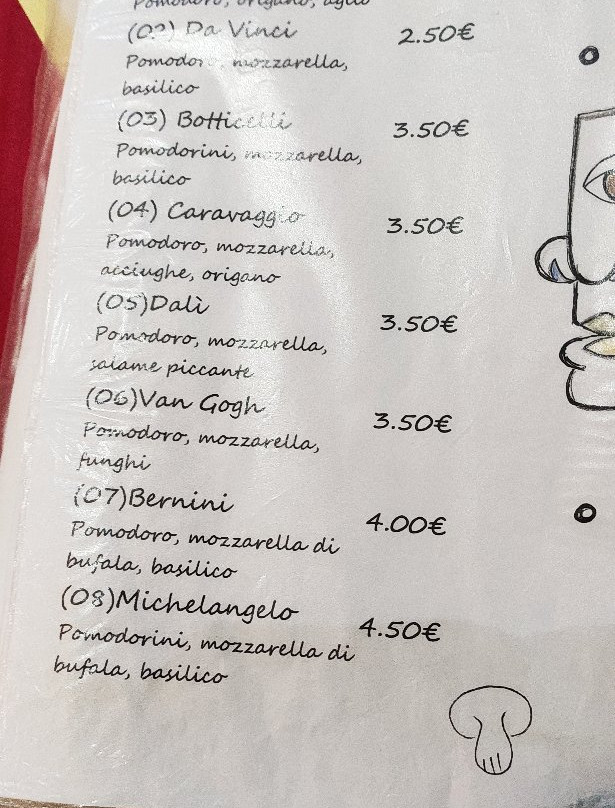 Pomodoro, origano, aglio
(02) Da Vinci 2.50€
Pomodoro, mozzarella,
basilico
(03) Botticelli 3.50€
Pomodorini, mozzarella,
basilico
(04) Caravaggio 3.50€
Pomodoro, mozzarella,
acciughe, origano
(05)Dalì 3.50€
Pomodoro, mozzarella,
salame piccante
(06)Van Gogh 3.50€
Pomodoro, mozzarella,
funghi
(07)Bernini 4.00€
Pomodoro, mozzarella di
bufala, basilico
(08)Michelangelo 4.50€
Pomodorini, mozzarella di
bufala, basilico